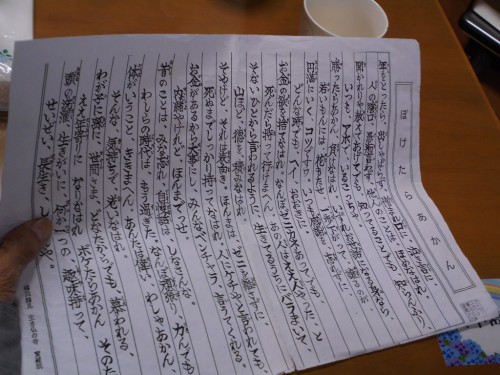 ぼけたらあかん
年をとったら、出しゃばらず、憎まれ口に
人の陰口、愚痴言わず、他人のことは、ほめなはれ、
聞かれりゃ教えてあげても、知ってることでも知らんふり、
いつでもアホでいるこっちゃ。
勝ったらあかん、負けなはれ
若い者には花もたせ、一歩さがって、ゆずるのが
円満にいくコツですわ。いつも感謝を
どんな時でも、ヘイ、おおきに。
お金の欲を捨てなはれ なんぼゼニカネあってても、
死んだら持って行けまへん あの人はええ人やった、と
そないひとから言われるように、生きてるうちにバラまいて、
山ほど、徳を積みなはれ
そやけど、それは表向き、ほんまは、ゼニを離さずに、
死ぬまでしっかり持ってなはれ 人にケチやと言われても、
お金があるから大事にし、みんなベンチャラ、言うてくれる。
内緒やけれど、ほんまでっせ。
昔のことは、みな忘れ、自慢話はしなさんな、
わしらの時代は、もう過ぎた、なんぼ頑張り、力んでも
体がいうこと、ききまへん あんたは偉い、わしゃあかん、
そんな、気持ちで、おいなはれ
わが子に孫に、世間さま どなたからでも、慕われる、
ええ年寄りに、なりなはれ ボケたらあかん そのた
頭の洗濯、生きがいに、何か一つの趣味持って、
せいぜい、長生き、しなはれや。